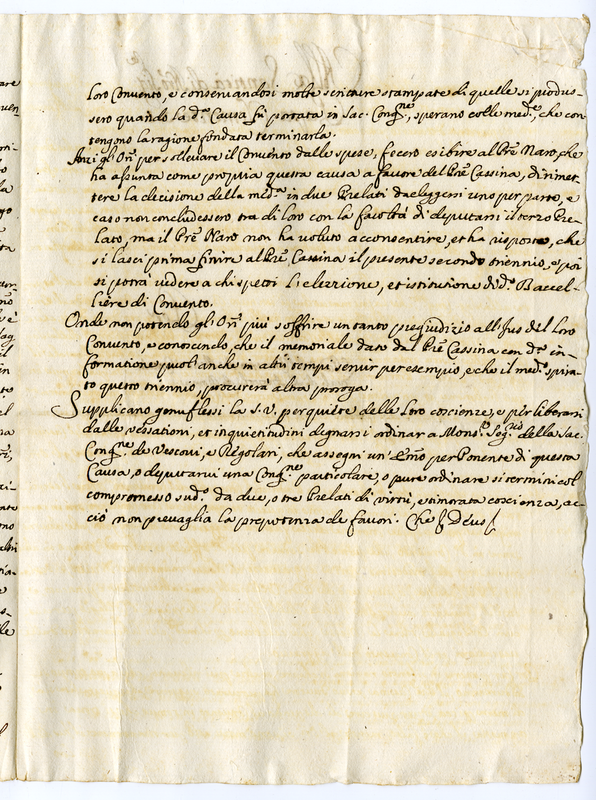 loro Convento, e conservandosi molte scritture stampate di quelle si produs-
sero quando la d.ª Causa fù portata in Sac. Cong.ne, sperano colle med.e, che con-
tengono la ragione fondata terminarla.
Anzi gli Ori per sollevare il Convento dalle spese, fecero esibire al Pre Naro, che
ha assunta come propria questa causa a favore del Pre Cassina, di rimet-
tere la decisione della med.ª in due Prelati da eleggersi uno per parte, e
caso non concludessero tra di loro con la facoltà di deputarsi il terzo Pre-
lato, ma il Pre Naro non ha voluto acconsentire, et ha risposto, che
si lasci prima finire al Pre Cassina il presente secondo triennio, e poi
si potrà vedere a chi spetti l'elezzione, et istitutione di d.º Baccel-
liere di Convento.
Onde non potendo gli Ori più soffrire un tanto pregiudizio all'Jus del loro
Convento, e conoscendo, che il memoriale dato dal Pre Cassina con d.ª in-
formatione puol'anche in altri tempi servir per esempio, e che il med.º spira-
to questo triennio, procurerà altra proroga.
Supplicano genuflessi la S.V. per quiete delle loro coscienze, e per liberarsi
dalle vessationi, et inquietitudini degnarsi ordinar a Mons.re Seg.rio della Sac.
Cong.ne de Vescovi, e Regolari, che assegni un' Emo per Ponente di questa
Causa, o deputarvi una Cong.ne particolare, o pure ordinare si termini col
compromesso sud.º da due, o tre Prelati di virtù, e timorata coscienza, ac-
ciò non prevaglia la prepotenza de favori. Che &c Deus &c